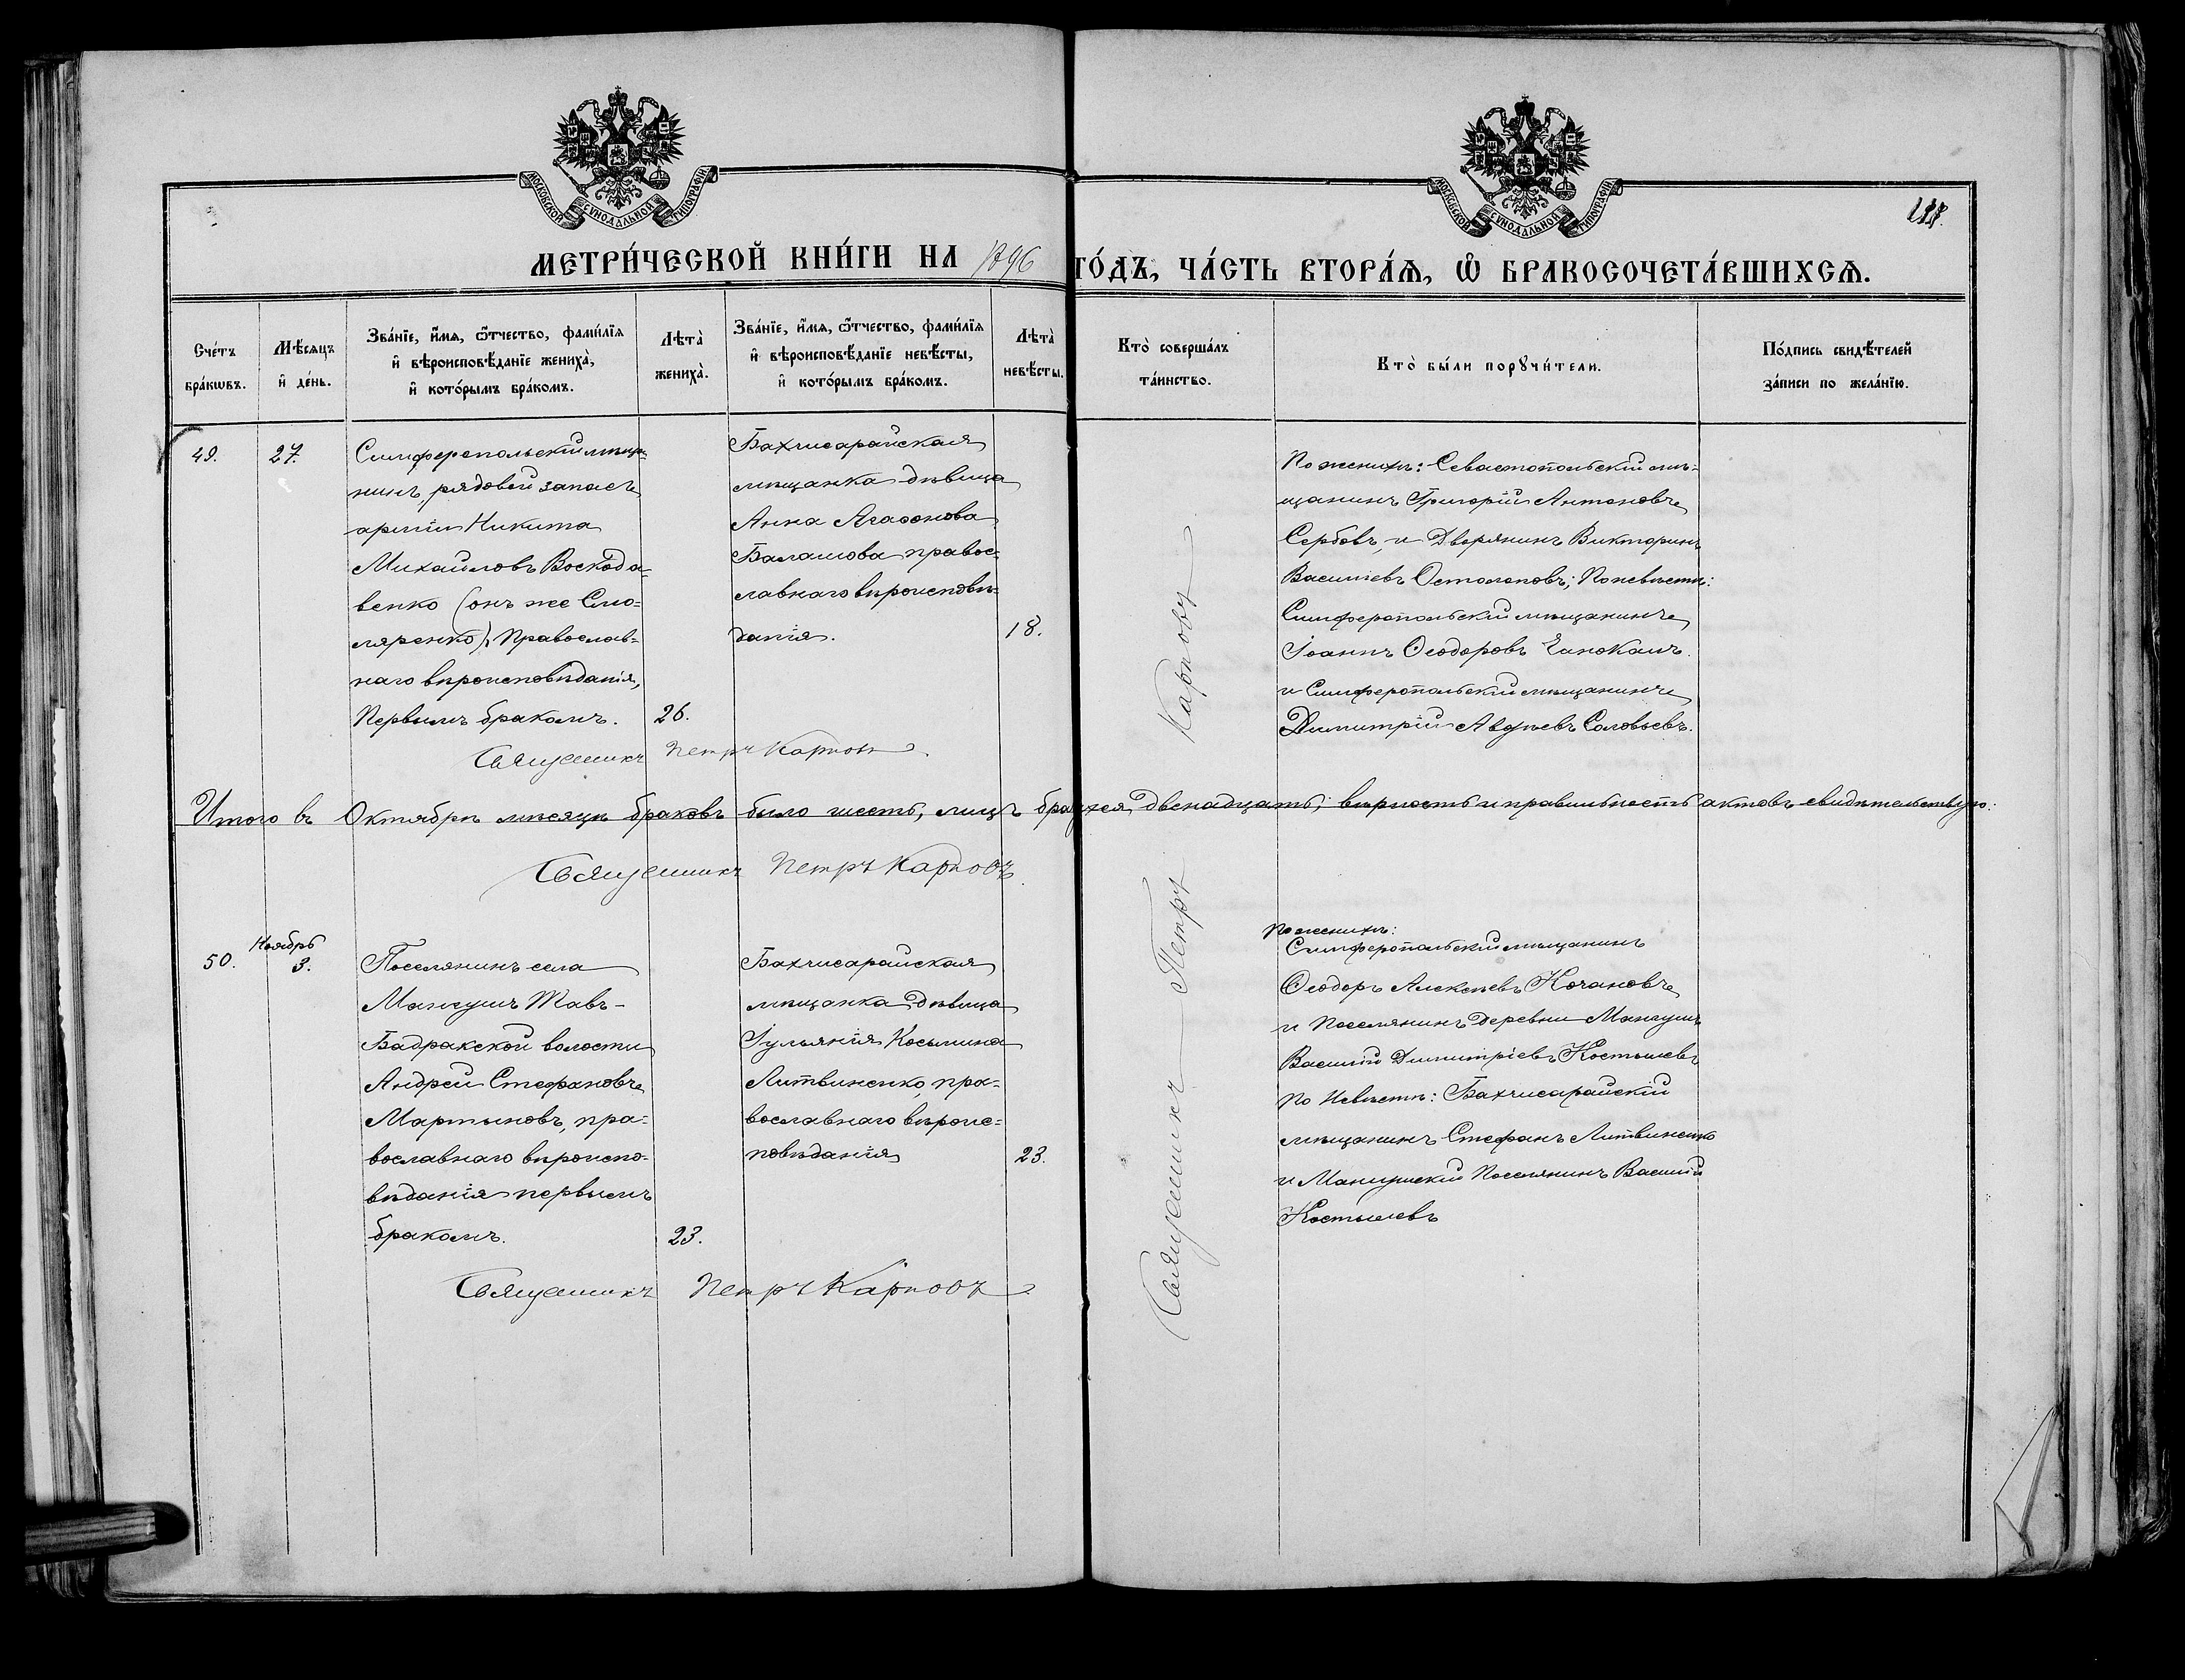 МОСКОВСКОЙ СѴНОДАЛЬНОЙ ТИПОГРАФІИ
МОСКОВСКОЙ СѴНОДАЛЬНОЙ ТИПОГРАФІИ
МЕТРИ́ЧЕСКОЙ КНИ́ГИ НА 1896 ГО́ДЪ, ЧА́СТЬ ВТОРА́Ѧ, Ѽ БРАКОСОЧЕТА́ВШИХСѦ.
Сче́тъ бра́кѡвъ.
Мѣ́сяцъ и҆ де́нь.
Зва́нїе, и҆́мѧ, ѻ҆́тчество, фами́лїѧ
и҆ вѣроисповѣ́данїе жениха̀,
и҆ кото́рымъ бра́комъ.
Лѣта̀ жениха̀.
Зва́нїе, и҆́мѧ, ѻ҆́тчество, фами́лїѧ
и҆ вѣроисповѣ́данїе невѣ́сты,
и҆ кото́рымъ бра́комъ.
Лѣта̀ невѣ́сты.
Кто̀ соверша́лъ та́инство.
Кто̀ бы́ли порꙋчи́тели.
По́дпись свидѣ́телей за́писи по жела́нїю.
49.
27.
Симферопольскій мѣща-
нинъ, рядовой запаса
арміи Никита
Михаиловъ Воскода-
венко (онъ же Сто-
ляренко), Православ-
наго вѣроисповѣданія,
Первымъ бракомъ.
26.
Бахчисарайская
мѣщанка дѣвица
Анна Агаѳонова
Балашова правос-
лавнаго вѣроисповѣ-
данія.
18.
Священникъ Петръ Карповъ.
По женихѣ: Севастопольскій мѣ-
щанинъ Григорій Антоновъ
Сербовъ, и Дворянинъ Викторинъ
Васильевъ Остолоповъ; По невѣстѣ:
Симферопольскій мѣщанинъ
Іоаннъ Ѳеодоровъ
и Симферопольскій мѣщанинъ
Димитрій Авдѣевъ Соловьевъ.
Итого въ Октябрѣ мѣсяцѣ браковъ было шесть, лицъ двенадцать; вѣрность и правильность актовъ свидѣтельствую:
Священникъ Петръ Карповъ.
Священникъ Петръ Карповъ
50.
Ноябрь
3.
Поселянинъ села
Мангушъ Тавъ-
Бадракской волости
Андрей Стефановъ
Мартыновъ, пра-
вославнаго вѣроиспо-
вѣданія первымъ
бракомъ.
23.
Бахчисарайская
мѣщанка дѣвица
Іульянія Косьмина
Литвиненко, пра-
вославнаго вѣроис-
повѣданія
23.
Священникъ Петръ Карповъ
По женихѣ:
Симферопольскій мѣщанинъ
Ѳеодоръ Алексѣевъ Кочановъ
и Поселянинъ деревни Мангушъ
Василій Димитріевъ Костылевъ
По Невѣстѣ: Бахчисарайскій
мѣщанинъ Стефанъ Литвиненко
и Мангушскій Поселянинъ Василій
Костылевъ